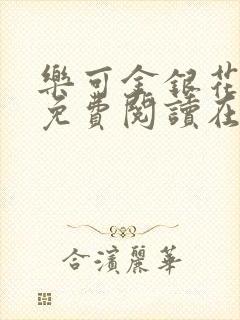 樂可金銀花
免費閱讀在
合濱麗華